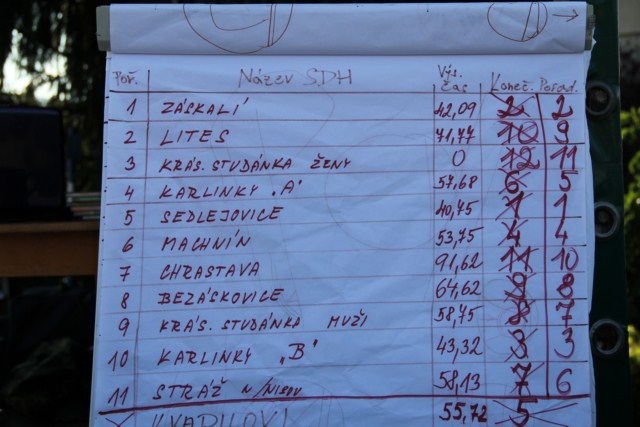 Poř. Název SDH Výs. čas Koneč. Pořad.
1 ZÁSKALÍ 42,09 2 2
2 LITES 71,77 10 9
3 KRÁS. STUDÁNKA ŽENY 0 12 11
4 KARLINKY „A" 57,68 6 5
5 SEDLEJOVICE 40,75 1 1
6 MACHNÍN 53,75 4 4
7 CHRASTAVA 91,62 11 10
8 BEZÁSKOVICE 64,62 9 8
9 KRÁS. STUDÁNKA MUŽI 58,75 8 7
10 KARLINKY „B" 43,32 3 3
11 STRÁŽ N/NISOU 58,13 7 6
KVAPILOVI 55,72 5